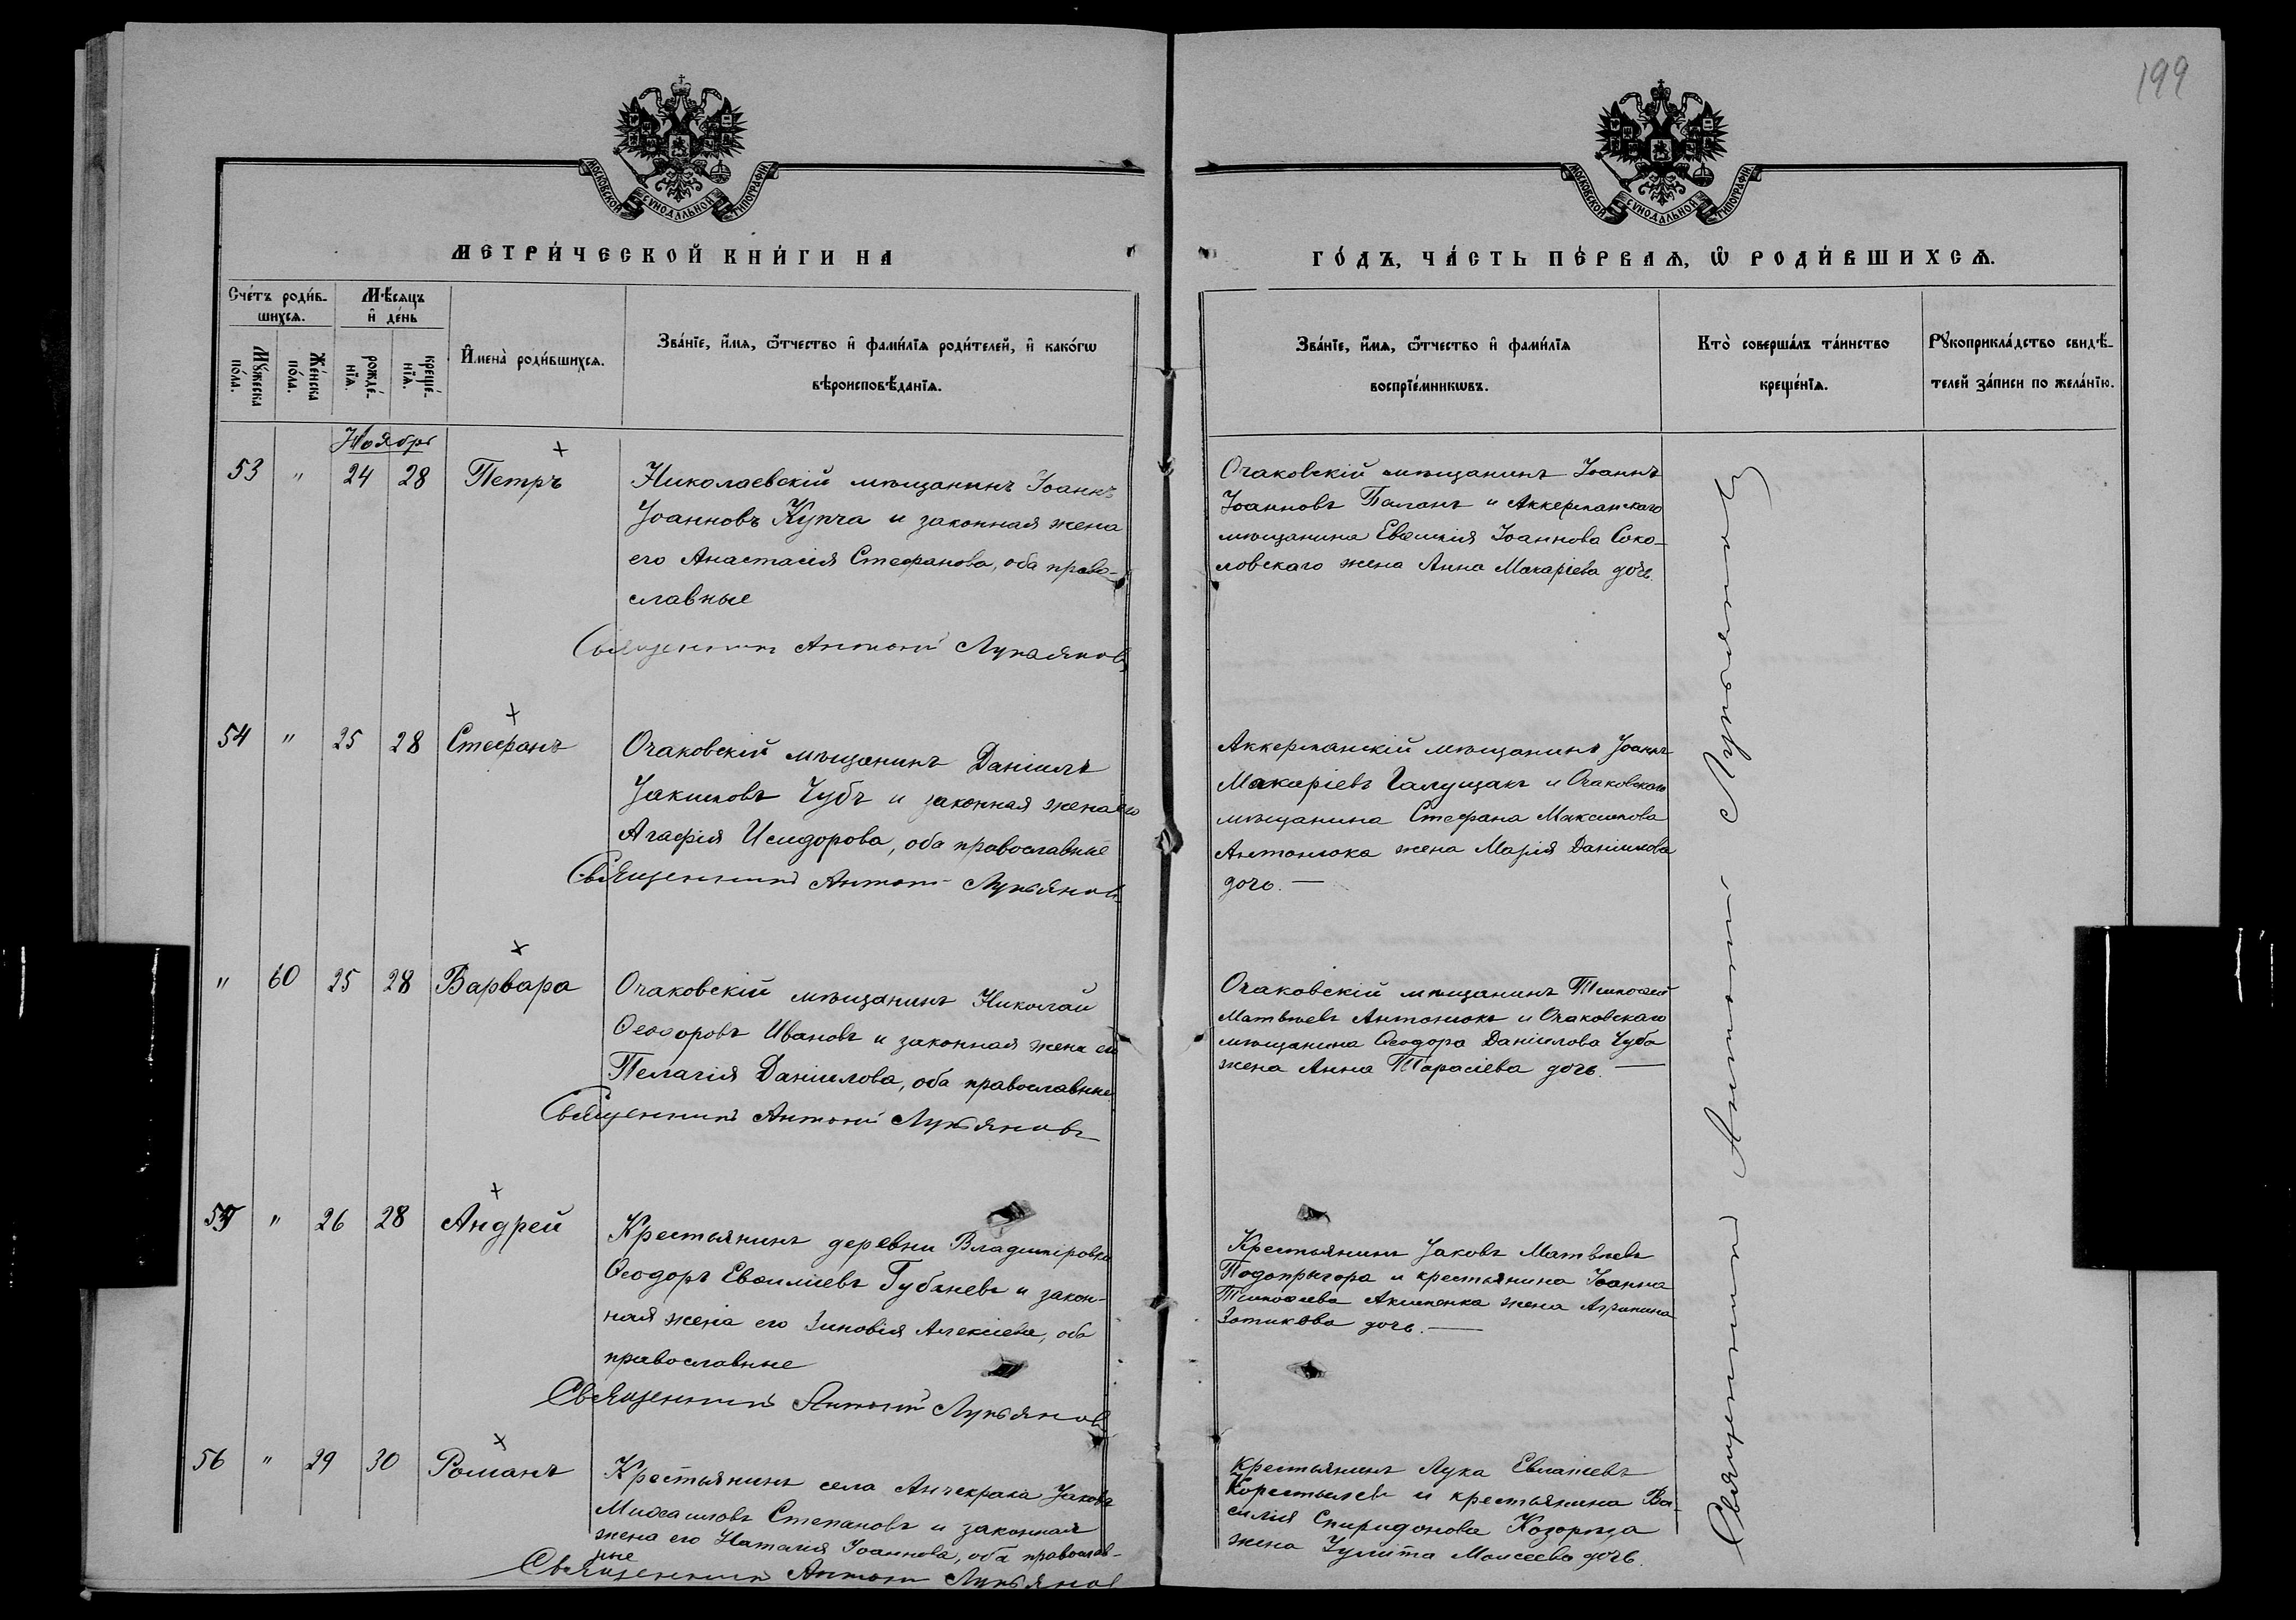 199
МОСКОВСКОЙ СѴНОДАЛЬНОЙ ТИПОГРАФІИ
МОСКОВСКОЙ СѴНОДАЛЬНОЙ ТИПОГРАФІИ
МЕТРИ́ЧЕСКОЙ КНИ́ГИ НА
ГО́ДЪ, ЧА́СТЬ ПЕ́РВАѦ, Ѽ РОДИ́ВШИХСѦ.
Сче́тъ роди́в-
шихсѧ.
Мꙋ́жеска
по́ла.
Же́нска
по́ла.
Мѣ́сѧцъ
и҆ де́нь
рожде́-
нїѧ.
креще́-
нїѧ.
И҆мена̀ роди́вшихсѧ.
Зва́нїе, и҆́мѧ, ѻ҆́тчество и҆ фами́лїѧ роди́телей, и҆ како́гѡ
вѣроисповѣ́данїѧ.
Зва́нїе, и҆́мѧ, ѻ҆́тчество и҆ фами́лїѧ
воспрїе́мникѡвъ.
Кто̀ соверша́лъ та́инство
креще́нїѧ.
Рꙋкоприкла́дство свидѣ́-
телей за́писи по жела́нїю.
Ноябрь
53 " 24 28 Петръ
Николаевскій мѣщанинъ Іоаннъ
Іоанновъ Купча и законная жена
его Анастасія Стефанова, оба право-
славные
Священникъ Антоній Лукьяновъ
Очаковскій мѣщанинъ Іоаннъ
Іоанновъ и Аккерманскаго
мѣщанина Евѳимія Іоаннова Соко-
ловскаго жена Анна Макаріева дочь.
54 " 25 28 Стефанъ
Очаковскій мѣщанинъ Даніилъ
Іакимовъ Чубъ и законная жена его
Агафія Исидорова, оба православные
Священникъ Антоній Лукьяновъ
Аккерманскій мѣщанинъ Іоаннъ
Макаріевъ Галущакъ и Очаковскаго
мѣщанина Стефана Максимова
Антонюка жена Марія Даніилова
дочь. —
" 60 25 28 Варвара
Очаковскій мѣщанинъ Николай
Ѳеодоровъ Ивановъ и законная жена его
Пелагія Даніилова, оба православные
Священникъ Антоній Лукьяновъ
Очаковскій мѣщанинъ Тимоѳей
Матвѣевъ Антонюкъ и Очаковскаго
мѣщанина Ѳеодора Даніилова Чуба
жена Анна Тарасіева дочь. —
55 " 26 28 Андрей
Крестьянинъ деревни Владиміровки
Ѳеодоръ Евѳиміевъ и закон-
ная жена его Зиновія Алексіева, оба
православные
Священникъ Антоній Лукьяновъ
Крестьянинъ Іаковъ Матвѣевъ
Подопрыгора и крестьянина Іоанна
Тимоѳеева Акименка жена Агрипина
Зотикова дочь. —
56 " 29 30 Романъ
Крестьянинъ села Анчекрака Іаковъ
Михаиловъ Степановъ и законная
жена его Наталія Іоаннова, оба православ-
ные
Священникъ Антоній Лукьяновъ
Крестьянинъ Лука
Коростылевъ и крестьянина Ва-
силія Спиридонова
жена Іулитта Моисеева дочь.
Священникъ Антоній Лукьяновъ